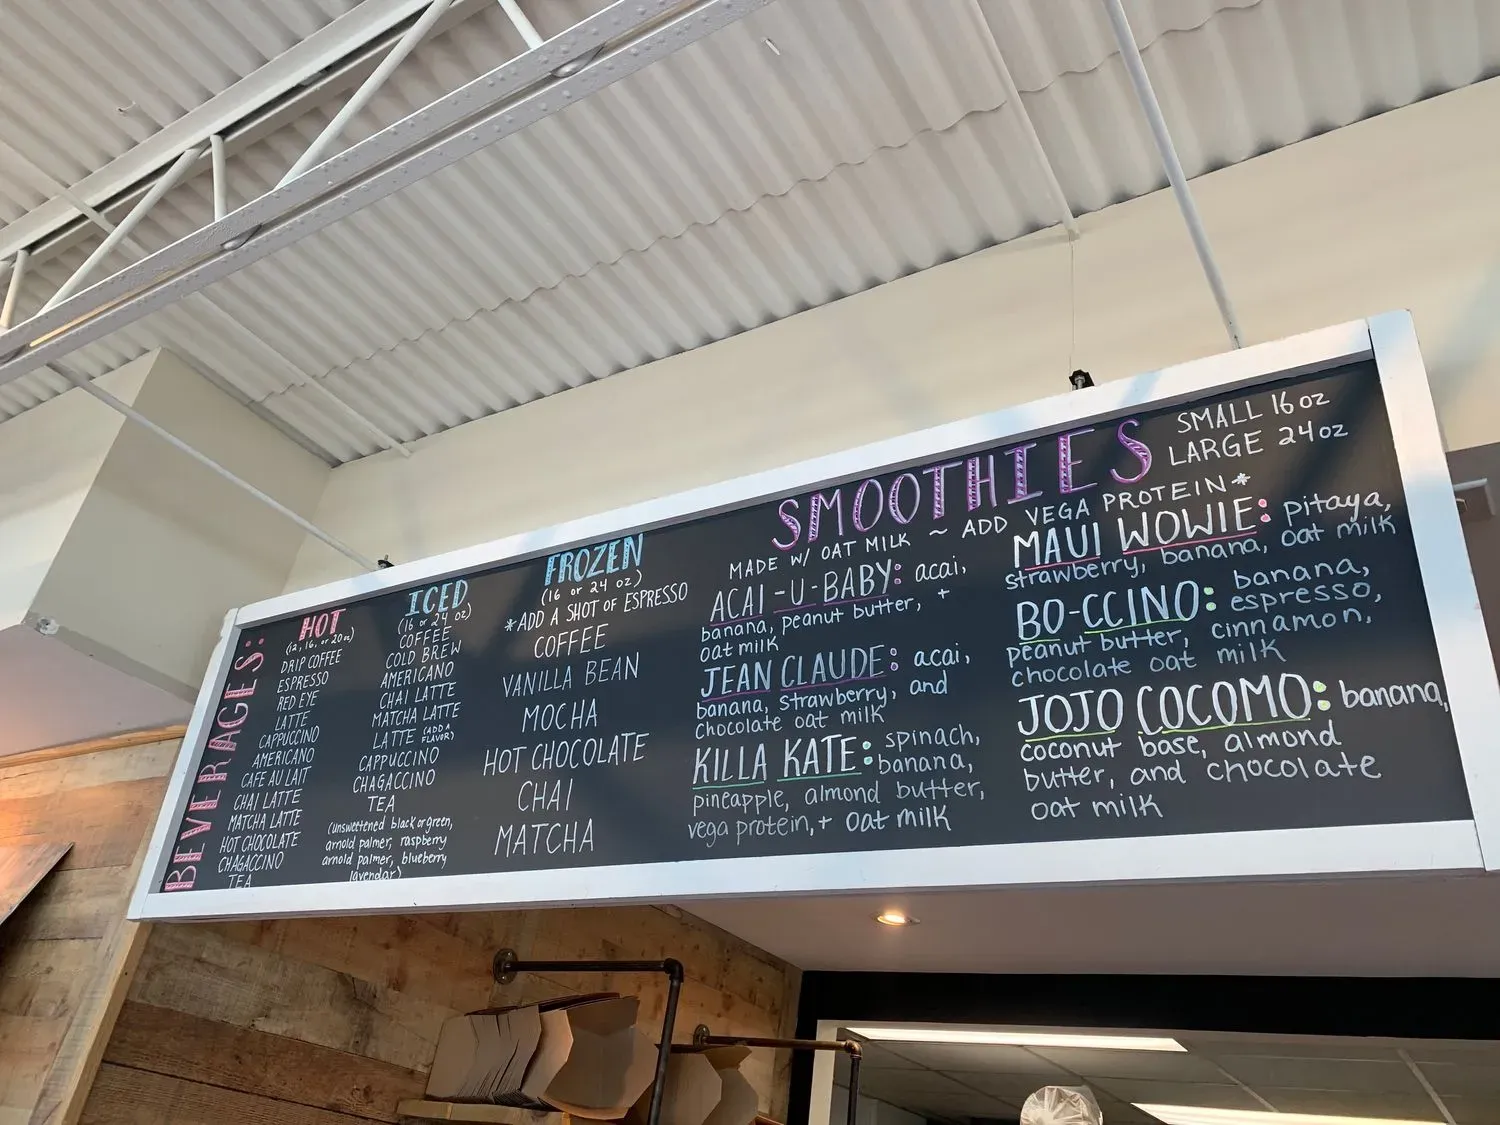 BEVERAGES:
HOT
(12, 16, or 20oz)
DRIP COFFEE
ESPRESSO
RED EYE
LATTE
CAPPUCCINO
AMERICANO
CAFE AU LAIT
CHAI LATTE
MATCHA LATTE
HOT CHOCOLATE
CHAGACCINO
TEA
ICED
(16 or 24 oz)
COFFEE
COLD BREW
AMERICANO
CHAI LATTE
MATCHA LATTE
LATTE (ADD A FLAVOR)
CAPPUCCINO
CHAGACCINO
TEA
(unsweetened black or green,
arnold palmer, raspberry
arnold palmer, blueberry
lavendar)
FROZEN
(16 or 24 oz)
*ADD A SHOT OF ESPRESSO
COFFEE
VANILLA BEAN
MOCHA
HOT CHOCOLATE
CHAI
MATCHA
SMOOTHIES
SMALL 16oz
LARGE 24oz
MADE W/ OAT MILK ~ ADD VEGA PROTEIN*
ACAI-U-BABY: acai,
banana, peanut butter, +
oat milk
JEAN CLAUDE: acai,
banana, strawberry, and
chocolate oat milk
KILLA KATE: spinach,
banana,
pineapple, almond butter,
vega protein, + oat milk
MAUI WOWIE: pitaya,
strawberry, banana, oat milk
BO-CCINO: banana,
espresso,
peanut butter, cinnamon,
chocolate oat milk
JOJO COCOMO: banana,
coconut base, almond
butter, and chocolate
oat milk